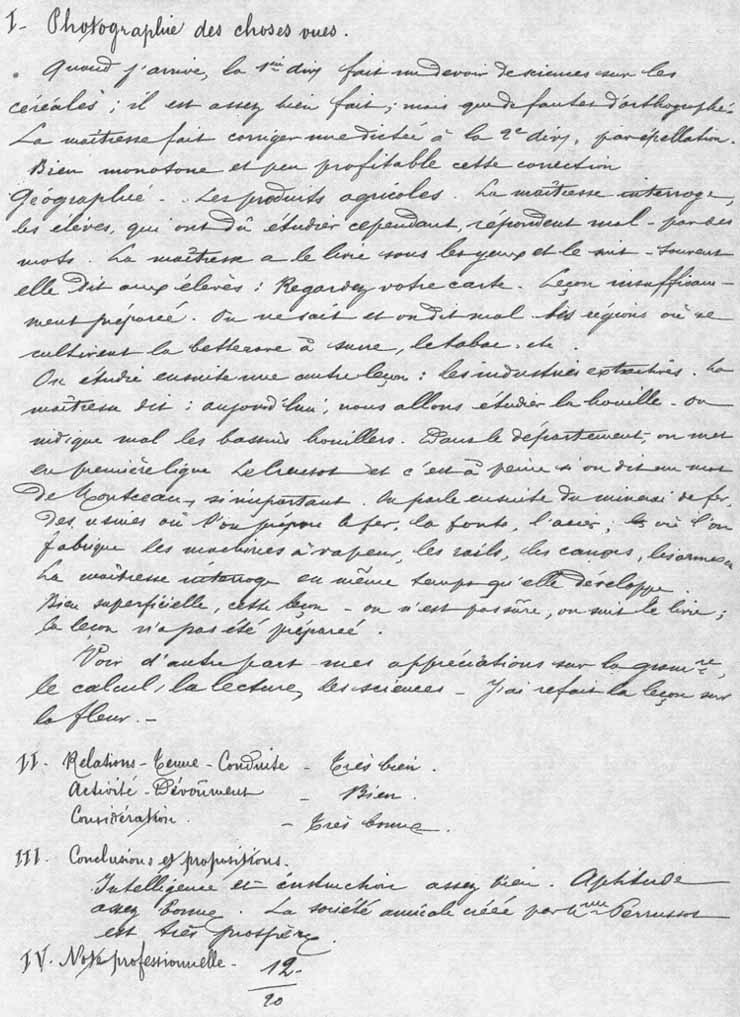 I- Photographie des choses vues.
. Quand j'arrive, la 1ère divon fait un devoir de sciences sur les
céréales ; il est assez bien fait ; mais que de fautes d'orthographe.
La maîtresse fait corriger une dictée à la 2e divon, par épellation.
Bien monotone et peu profitable cette correction
Géographie - . Les produits agricoles. La maîtresse interroge,
les élèves, qui ont dû étudier cependant, répondent mal - par des
mots. La maîtresse a le livre sous les yeux et le suit - Souvent
elle dit aux élèves : Regardez votre carte. Leçon insuffisam-
ment préparée. On ne sait et on dit mal les régions où se
cultivent la betterave à sucre, le tabac, etc.
On étudie ensuite une autre leçon : les industries extractives. La
maîtresse dit : aujourd'hui, nous allons étudier la houille - On
indique mal les bassins houillers. Dans le département, on met
en première ligne Le Creusot et c'est à peine si on dit un mot
de Montceau, si important. On parle ensuite du minerai de fer,
des usines où l'on prépare le fer, la fonte, l'acier ; là où l'on
fabrique les machines à vapeur, les rails, les canons, les armes
La maîtresse interroge en même temps qu'elle développe.
Bien superficielle, cette leçon - on n'est pas sûre, on suit le livre ;
la leçon n'a pas été préparée.
Voir d'autre part mes appréciations sur la gramre,
le calcul, la lecture, les sciences - J'ai refait la leçon sur
la fleur. -
II. Relations - Tenue - Conduite - Très bien.
Activité - Dévoûment - Bien.
Considération. - Très bonne.
III. Conclusions et propositions.
Intelligence et instruction assez bien. Aptitude
assez bonne. La société amicale créée par Mme Perrusson
est très prospère.
IV. Note professionnelle - 12
20